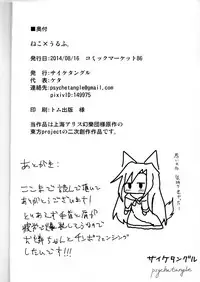 ■奥付
ねこ×うるふ。
発行日:2014/08/16 コミックマーケット86
発行:サイケタングル
代表:ケタ
連絡先:psychetangle@gmail.com
pixivID:149975
印刷:トム出版 様
当作品は上海アリス幻樂団様原作の
東方projectの二次創作作品です。
あとがき:
ここまで読んで頂いて
ありがとうございます!
とりあえず手首と肩が
疲労で爆発しそうなので
お燐ちゃんとチンポフェンシング
したいです!!!
サイケタングル
psychetangle